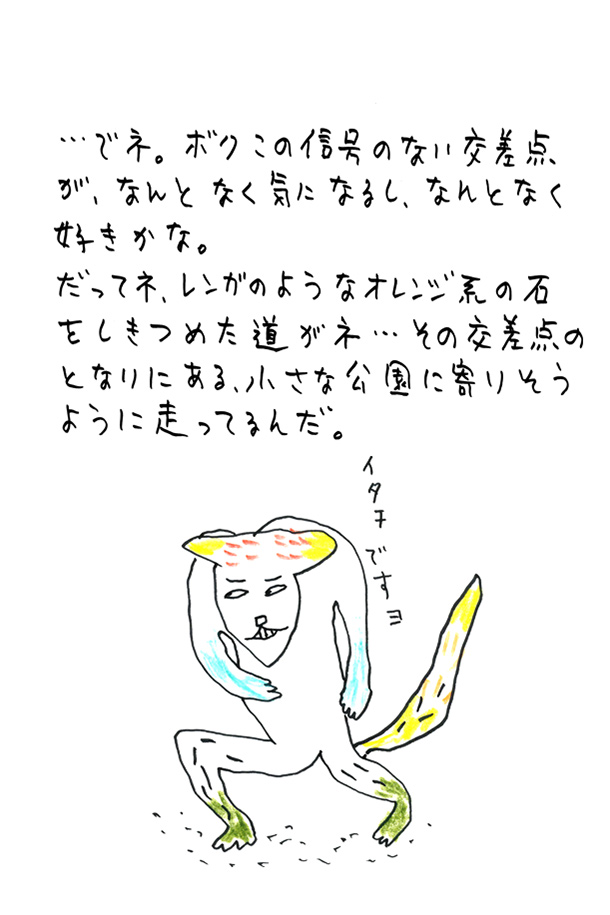 …でネ。ボクこの信号のない交差点
が、なんとなく気になるし、なんとなく
好きかな。
だってネ、レンガのようなオレンジ系の石
をしきつめた道がネ…その交差点の
となりにある、小さな公園に寄りそう
ように走ってるんだ。
イタチですヨ